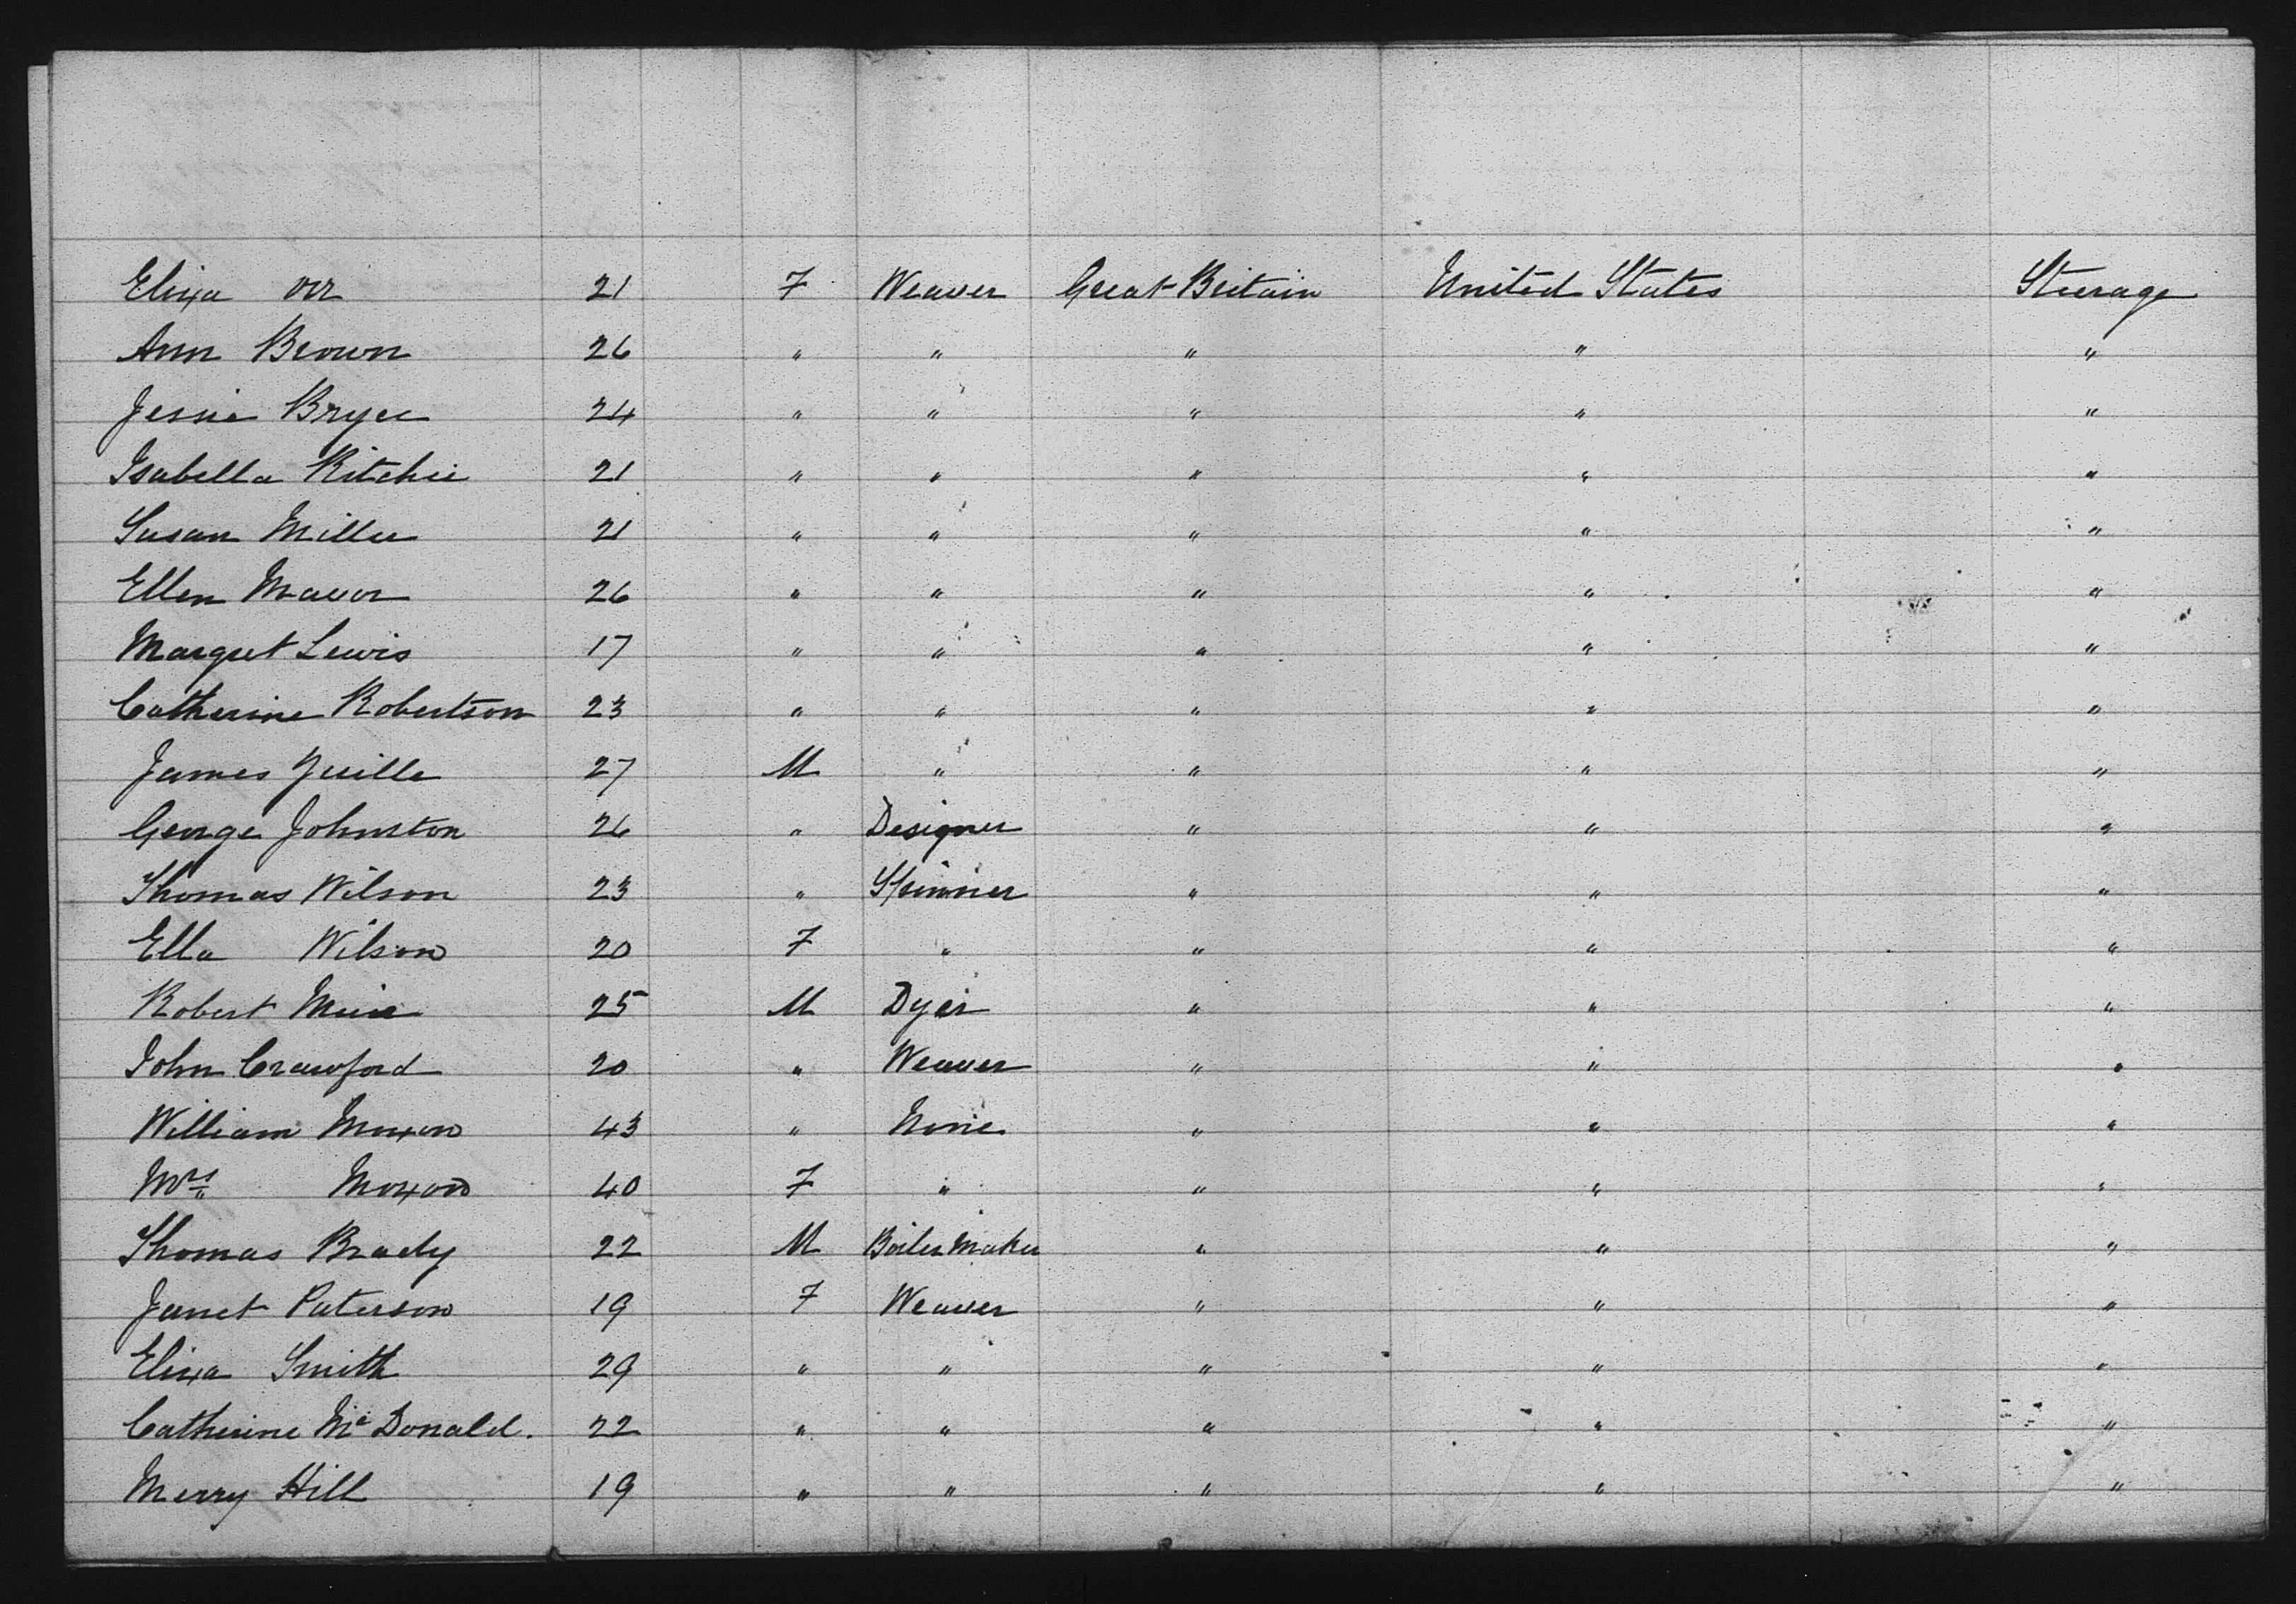 Eliza Orr 21 F Weaver Great Britain United States Steerage
Ann Brown 26 " " " " "
Jessie Bryce 24 " " " " "
Isabella Ritchie 21 " " " " "
Susan Miller 21 " " " " "
Ellen Mavor 26 " " " " "
Margret Lewis 17 " " " " "
Catherine Robertson 23 " " " " "
James Yuille 27 M " " " "
George Johnston 26 " Designer " " "
Thomas Wilson 23 " Spinner " " "
Ella Wilson 20 F " " " "
Robert Muir 25 M Dyer " " "
John Crawford 20 " Weaver " " "
William Moxon 43 " None " " "
Mrs Moxon 40 F " " " "
Thomas Brady 22 M Boiler Maker " " "
Janet Paterson 19 F Weaver " " "
Eliza Smith 29 " " " " "
Catherine McDonald. 22 " " " " "
Merry Hill 19 " " " " "